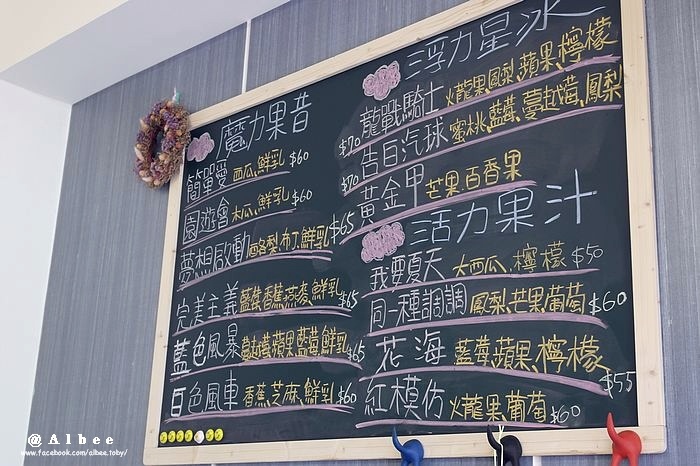 魔力果昔
簡單愛 西瓜、鮮乳 $60
園遊會 木瓜、鮮乳 $60
夢想啟動 酪梨、布丁、鮮乳 $65
完美主義 藍莓、香蕉、燕麥、鮮乳 $65
藍色風暴 蔓越莓、蘋果、藍莓、鮮乳 $65
百色風車 香蕉、芝麻、鮮乳 $60
浮力星冰
龍戰騎士 火龍果、鳳梨、蘋果、檸檬 $70
告白汽球 蜜桃、藍莓、蔓越莓、鳳梨 $70
黃金甲 芒果、百香果
活力果汁
我要夏天 大西瓜、檸檬 $50
同一種調調 鳳梨、芒果、葡萄 $60
花海 藍莓、蘋果、檸檬 $55
紅模仿 火龍果、葡萄 $60
@Albee
www.facebook.com/albee.toby/